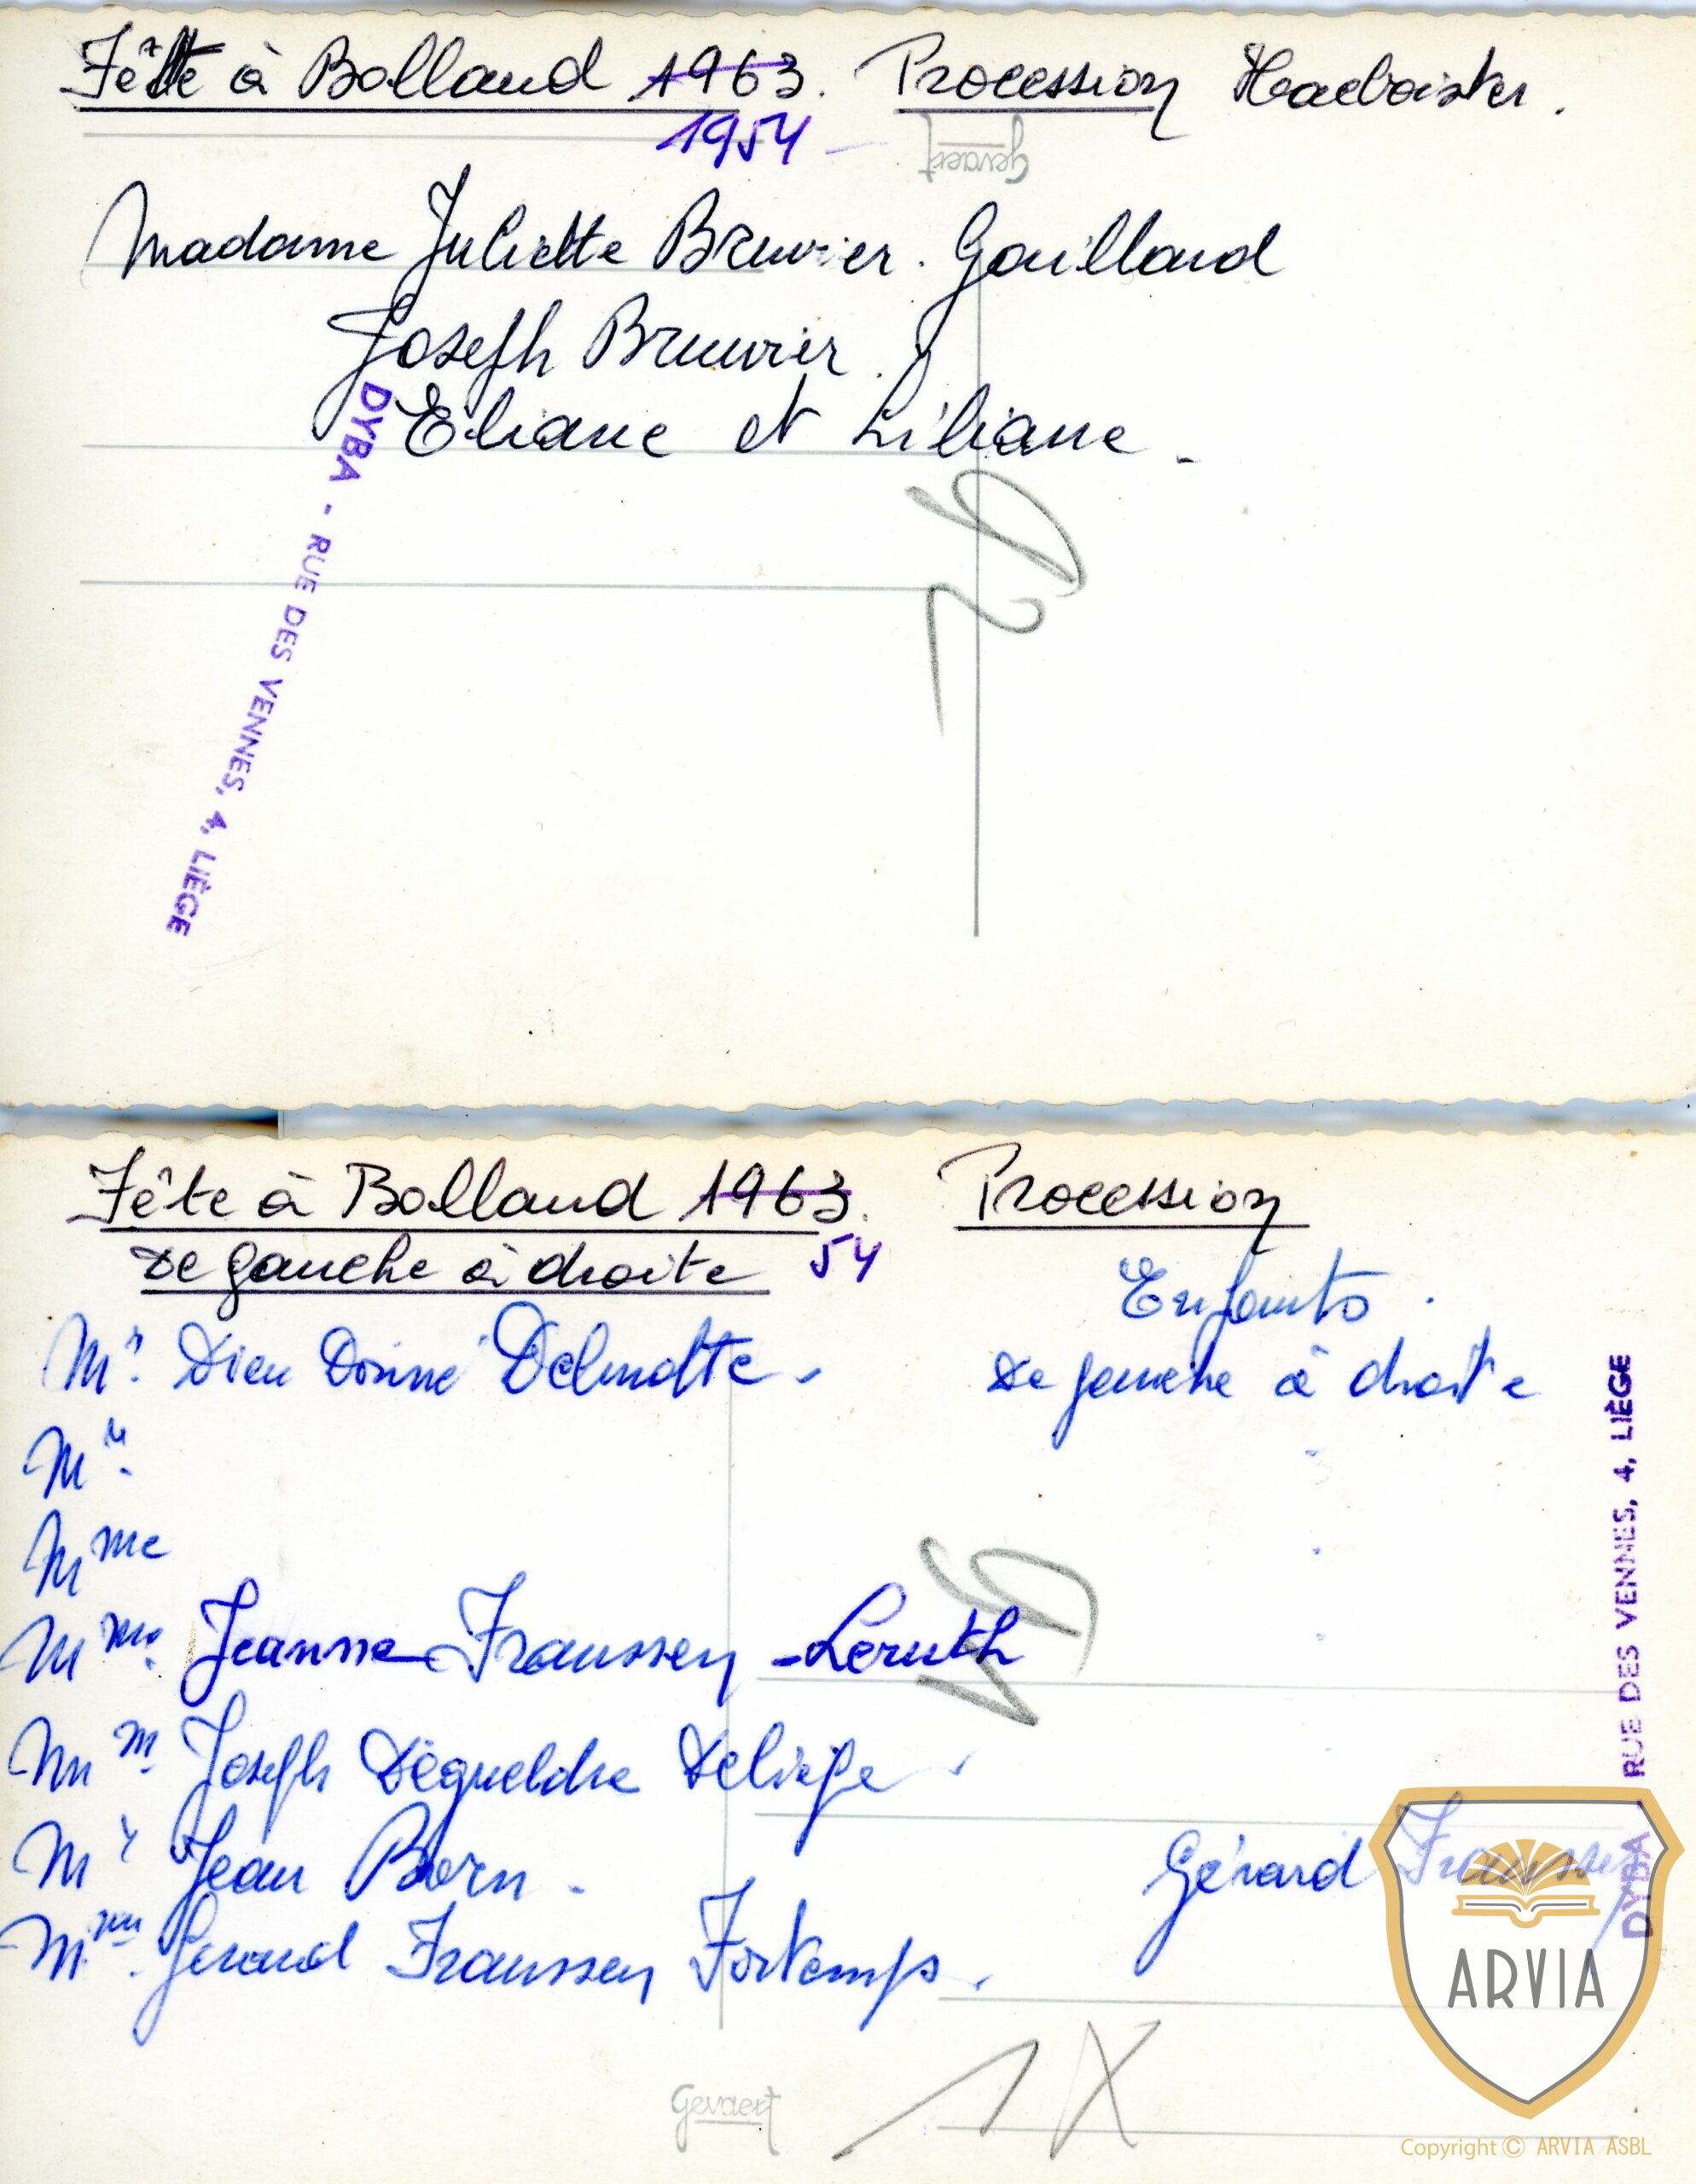 Fête à Bolland 1963. Procession Hacboister.
1954
gevaert
Madame Juliette Bruwier. Gaillard
Joseph Bruwier.
Eliane et Liliane.
DYBA - RUE DES VENNES, 4, LIÈGE
Fête à Bolland 1963. Procession
54
de gauche à droite
Enfants.
de gauche à droite
Mr. Dieu Donné Delmotte.
Mr.
Mme
Mme. Jeanne Franssen-Leruth
Mm. Joseph Dégueldre Deliège
Mr Jean Born.
Gérard Franssen
Mme. Gerard Franssen Fortemps.
DYBA - RUE DES VENNES, 4, LIÈGE
1X
Gevaert
ARVIA
Copyright © ARVIA ASBL